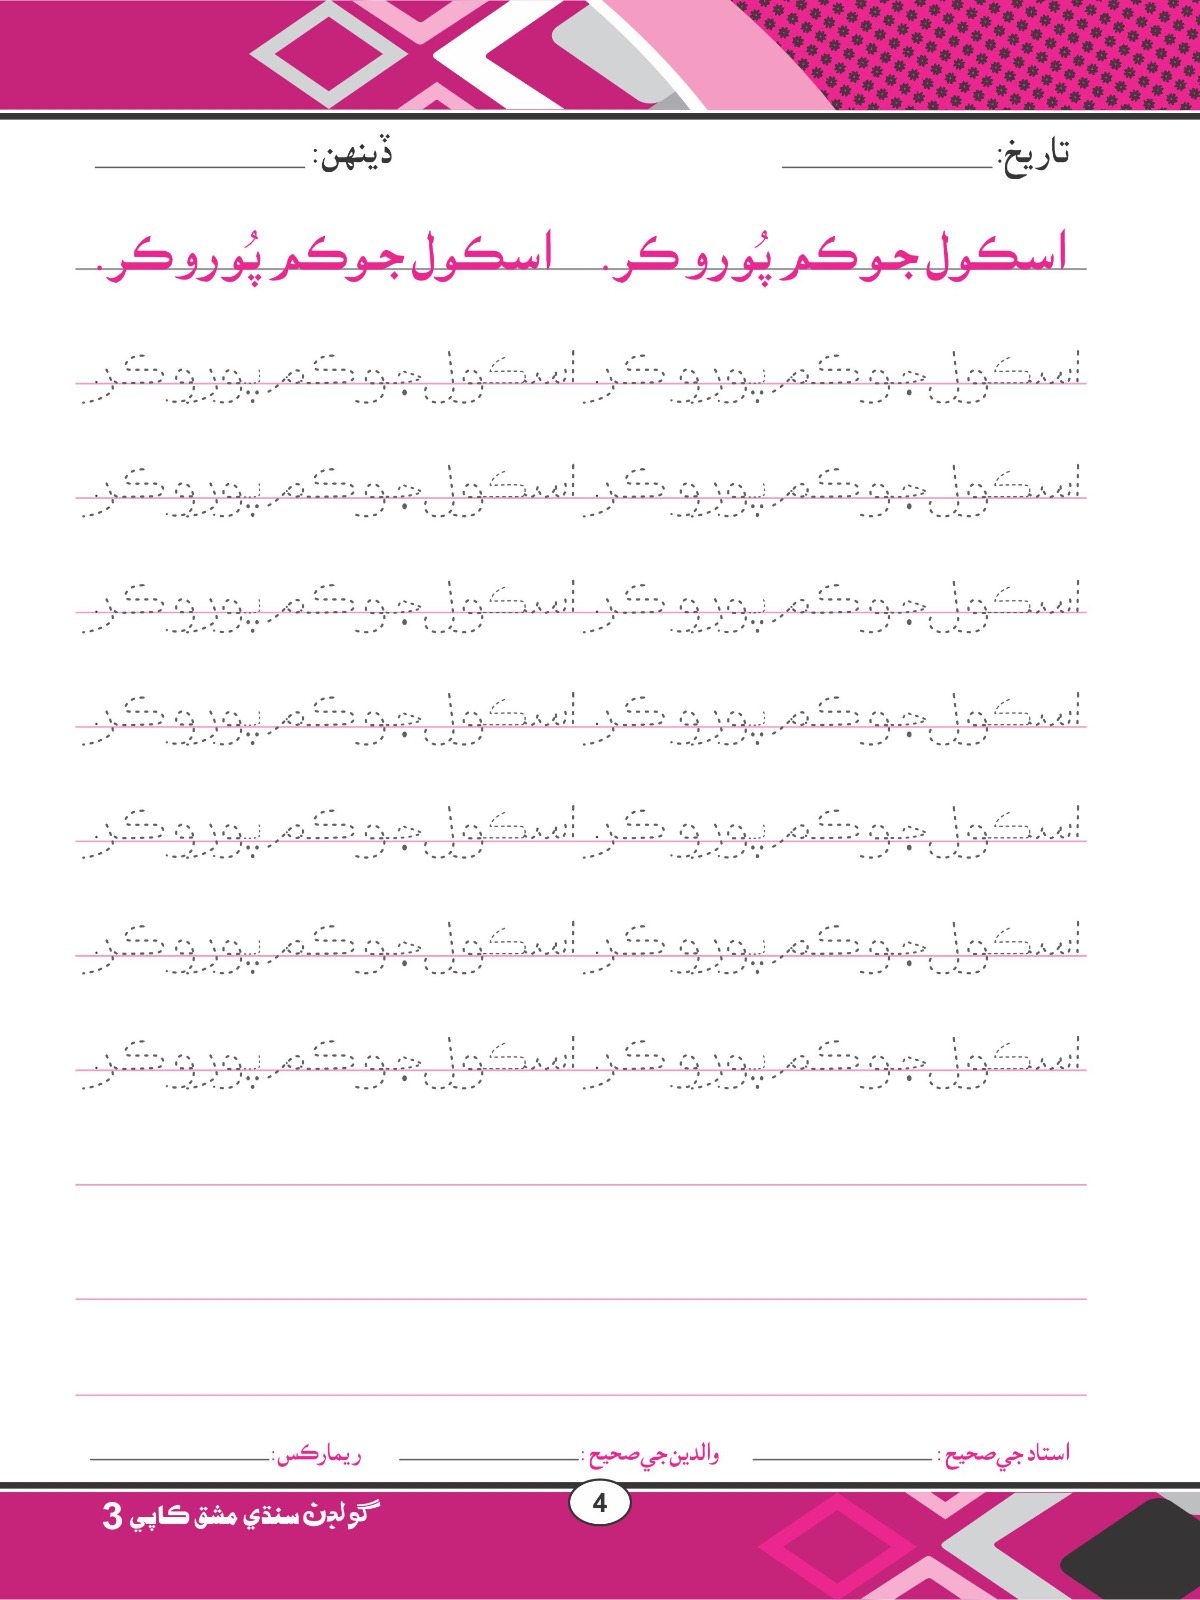 تاريخ: ڏينهن:
اسڪول جو ڪم پُورو ڪر. اسڪول جو ڪم پُورو ڪر.
اسڪول جو ڪم پورو ڪر. اسڪول جو ڪم پورو ڪر.
اسڪول جو ڪم پورو ڪر. اسڪول جو ڪم پورو ڪر.
اسڪول جو ڪم پورو ڪر. اسڪول جو ڪم پورو ڪر.
اسڪول جو ڪم پورو ڪر. اسڪول جو ڪم پورو ڪر.
اسڪول جو ڪم پورو ڪر. اسڪول جو ڪم پورو ڪر.
اسڪول جو ڪم پورو ڪر. اسڪول جو ڪم پورو ڪر.
اسڪول جو ڪم پورو ڪر. اسڪول جو ڪم پورو ڪر.
استاد جي صحيح: والدين جي صحيح: ريمارڪس:
4
گولڊن سنڌي مشق ڪاپي 3